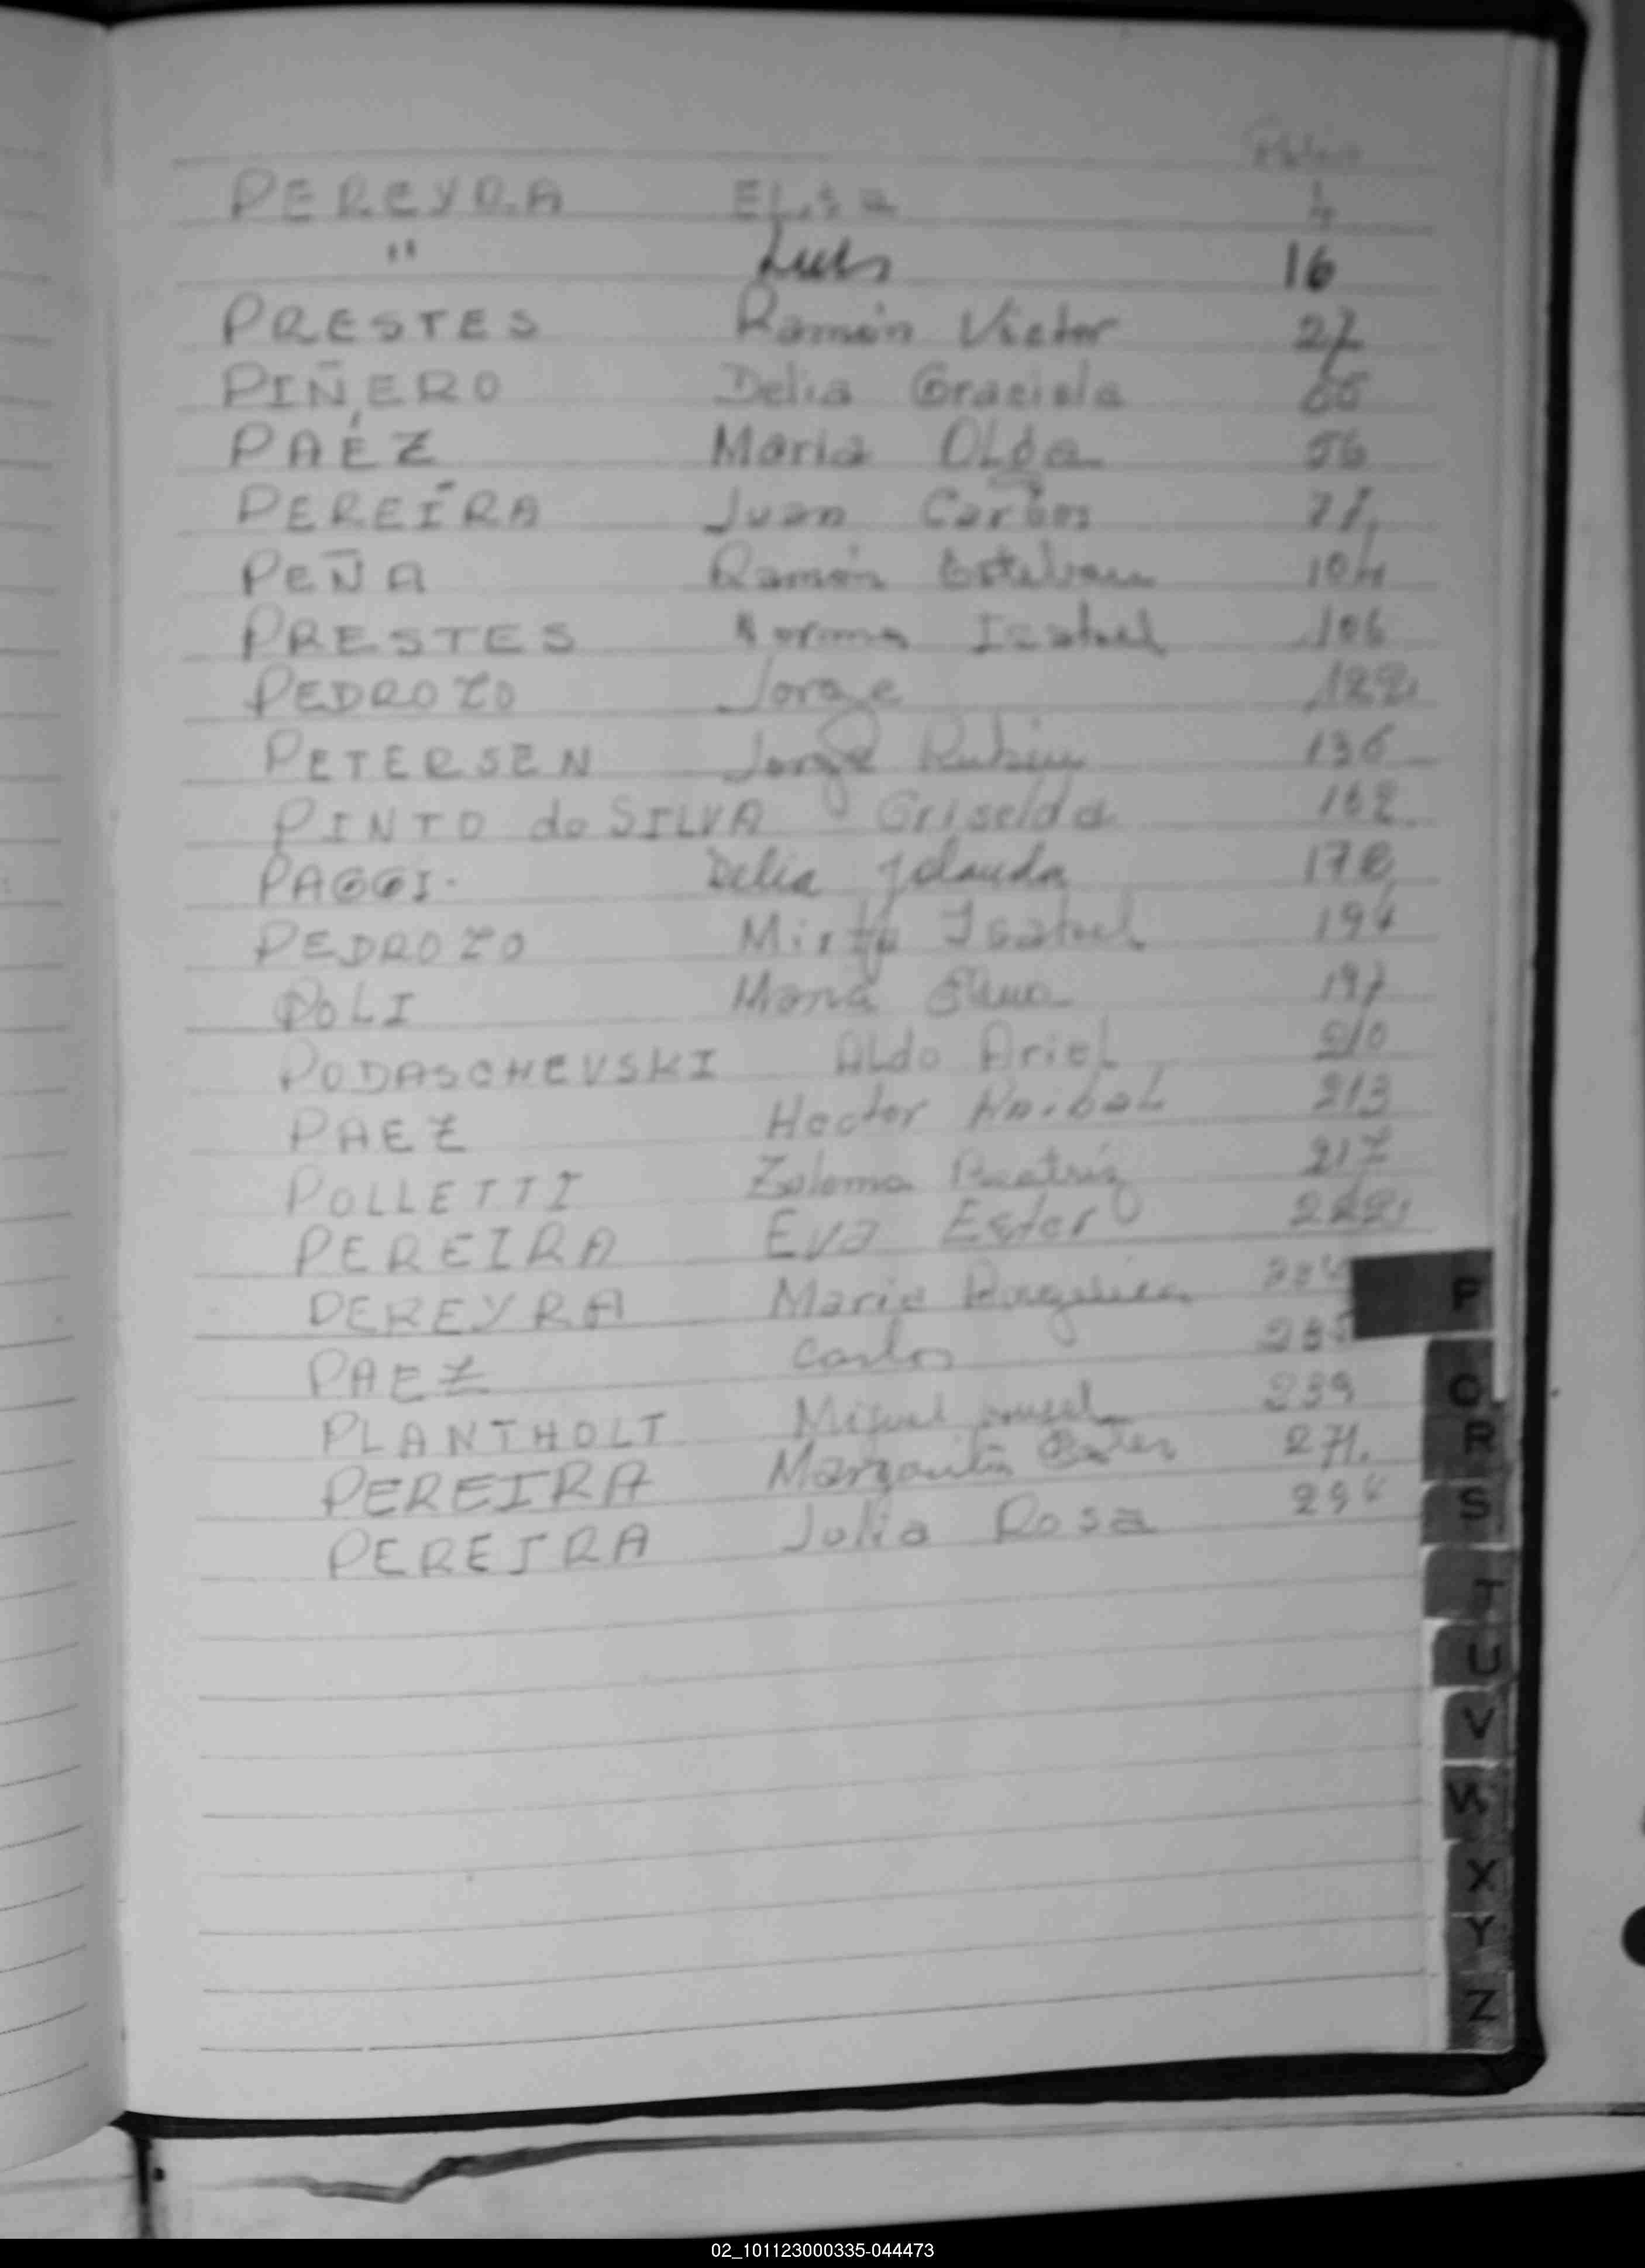 PEREYRA Elsa 4
" Luis 16
PRESTES Ramón Victor 27
PIÑERO Delia Graciela
PAÉZ Maria Olga 56
PEREÍRA Juan Carlos 77
PEÑA Ramón Esteban 104
PRESTES Norma Isabel 106
PEDROZO Jorge 122
PETERSEN Jorge Rubén 136
PINTO do SILVA Griselda 162
PAGGI. Delia Yolanda 178
PEDROZO Mirta Isabel 194
POLI María Elena 197
PODASCHEVSKI Aldo Ariel 210
PAEZ Hector Anibal 213
POLLETTI Zulema Beatríz 217
PEREIRA Eva Ester 222
PEREYRA Maria Angelica
PAEZ Carlos 235
PLANTHOLT Miguel Angel 239
PEREIRA Margarita Ester 271.
PEREIRA Julia Rosa 294
P
Q
R
S
T
U
V
W
X
Y
Z
02_101123000335-044473